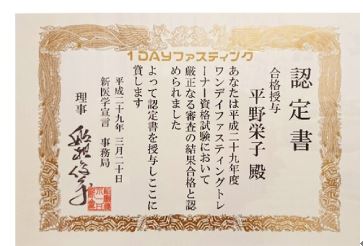 1DAYファスティング
認定書
合格授与
平野栄子殿
あなたは平成二十九年度
ワンデイファスティングトレ
ーナー資格試験において
厳正なる審査の結果合格と認
められました
よって認定書を授与しここに
賞します
平成二十九年三月二十日
新医学宣言 事務局
理事